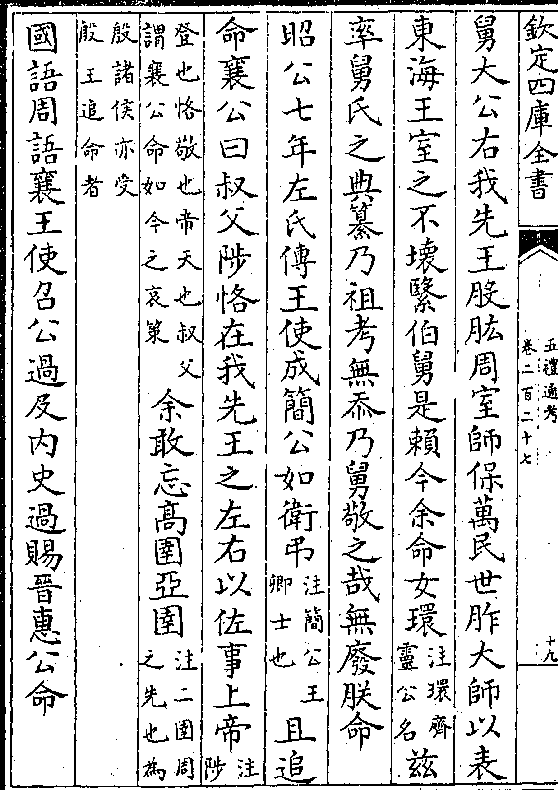 欽定四庫全書
五禮通考
卷二百二十七
十九
舅大公右我先王股肱周室師保萬民世胙大師以表
東海王室之不壞繄伯舅是賴今余命女環注環齊靈公名兹
率舅氏之典纂乃祖考無忝乃舅敬之哉無廢朕命
昭公七年左氏傳王使成簡公如衛弔注簡公王卿士也且追
命襄公曰叔父陟恪在我先王之左右以佐事上帝注陟
登也恪敬也帝天也叔父謂襄公命如今之哀策余敢忘高圉亞圉注二圉周之先也為
殷諸侯亦受殷王追命者
國語周語襄王使召公過及内史過賜晉惠公命